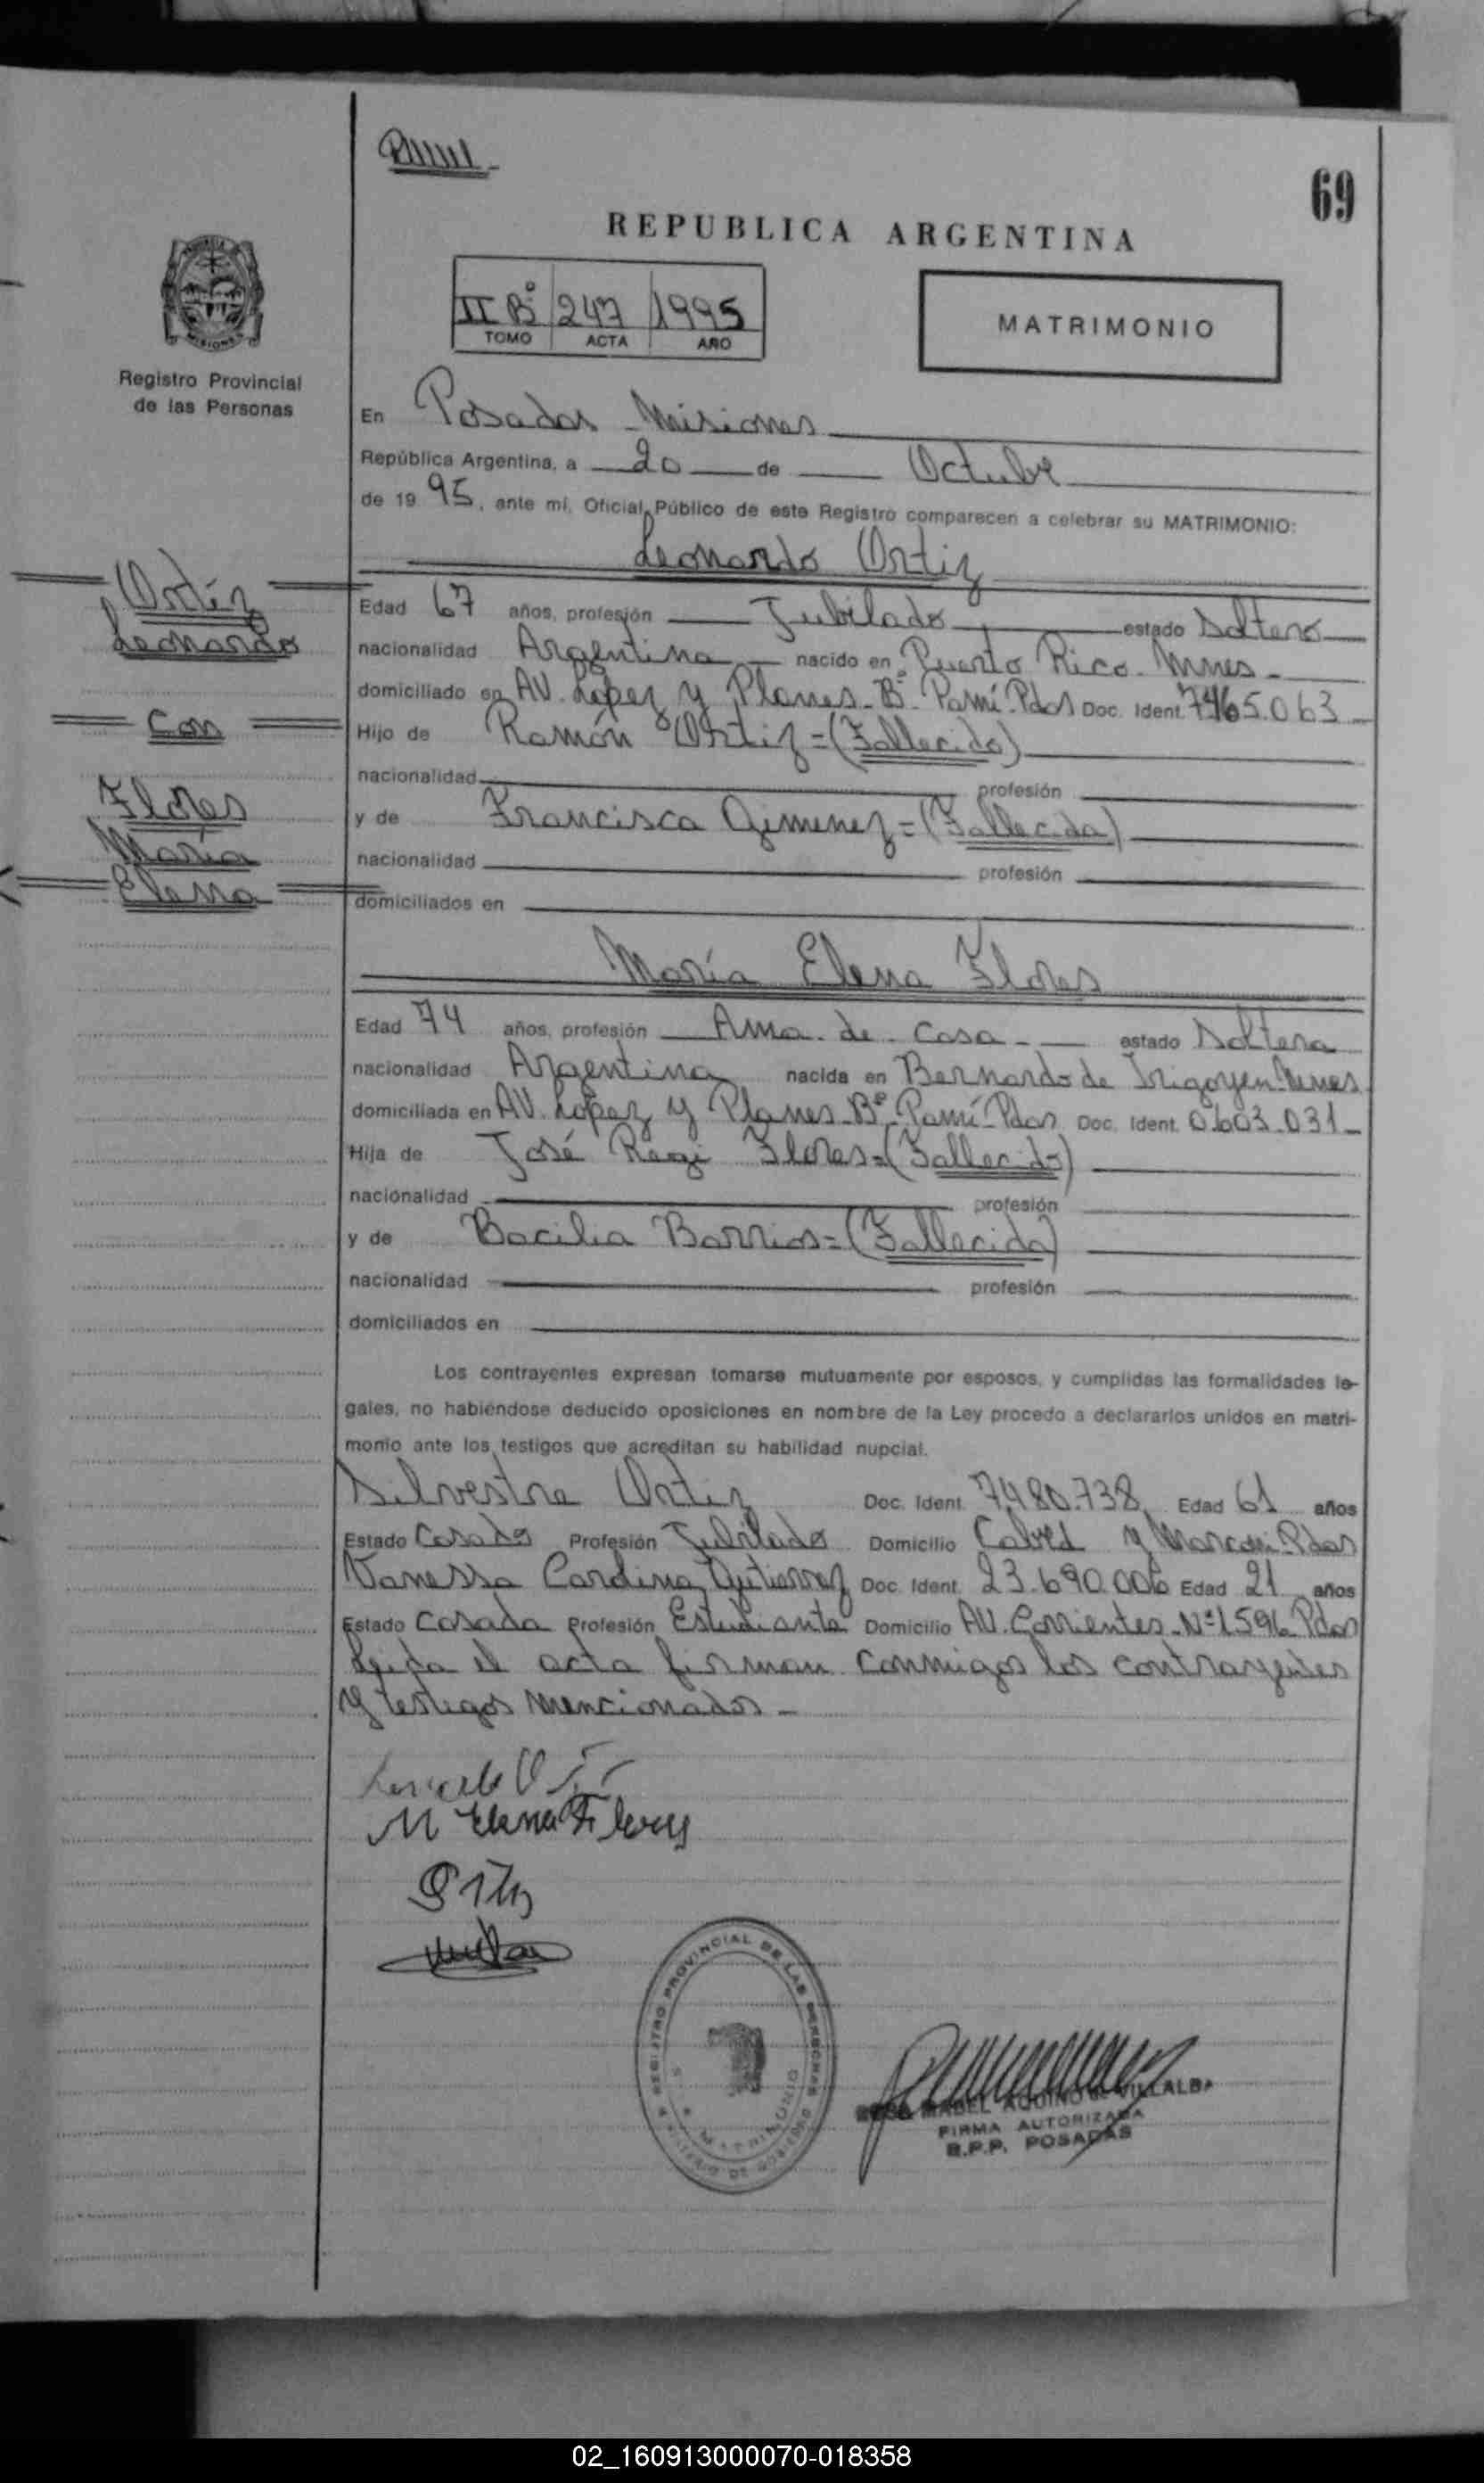 69
REPUBLICA ARGENTINA
II Bº 247 1995
TOMO ACTA AÑO
MATRIMONIO
Registro Provincial
de las Personas
En Posadas - Misiones
República Argentina, a 20 de Octubre
de 1995, ante mí, Oficial Público de este Registro comparecen a celebrar su MATRIMONIO:
Leonardo Ortiz
Edad 67 años, profesión Jubilado estado Soltero
nacionalidad Argentina nacido en Puerto Rico - Mnes -
domiciliado en AV. López y Planes - Bº - Pamí - Pdas Doc. Ident. 7.465.063
Hijo de Ramón Ortiz = (Fallecido)
nacionalidad profesión
y de Francisca Gimenez = (Fallecida)
nacionalidad profesión
domiciliados en
Ortíz
Leonardo
Con
Flores
María
Elena
María Elena Flores
Edad 74 años, profesión Ama - de - Casa - estado Soltera
nacionalidad Argentina nacida en Bernardo de Irigoyen - Mnes
domiciliada en AV. López y Planes - Bº - Pamí - Pdas Doc. Ident. 0.603.031 -
Hija de José Flores = (Fallecido)
nacionalidad profesión
y de Bacilia Barrios = (Fallecida)
nacionalidad profesión
domiciliados en
Los contrayentes expresan tomarse mutuamente por esposos, y cumplidas las formalidades le-
gales, no habiéndose deducido oposiciones en nombre de la Ley procedo a declararlos unidos en matri-
monio ante los testigos que acreditan su habilidad nupcial.
Silvestre Ortiz Doc. Ident. 7.480.738 Edad 61 años
Estado Casado Profesión Jubilado Domicilio y Marconi Pdas
Vanessa Cardina Gutierrez Doc. Ident. 23.690.006 Edad 21 años
Estado Casada Profesión Estudiante Domicilio AV. Corrientes - Nº 1596 Pdas
Leída el acta firman conmigos los contrayentes
y testigos mencionados -
M Elena Flores
REGISTRO PROVINCIAL DE LAS PERSONAS
MATRIMONIO
MABEL AQUINO de VILLALBA
FIRMA AUTORIZADA
R.P.P. POSADAS
02_160913000070-018358